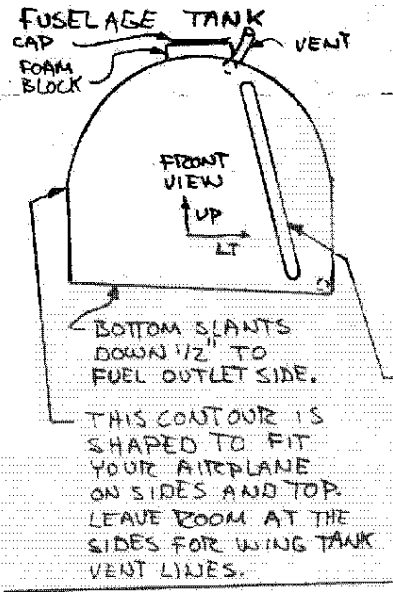 FUSELAGE TANK
CAP
FOAM
BLOCK
VENT
FRONT
VIEW
UP
LT
BOTTOM SLANTS
DOWN 1/2" TO
FUEL OUTLET SIDE.
THIS CONTOUR IS
SHAPED TO FIT
YOUR AIRPLANE
ON SIDES AND TOP.
LEAVE ROOM AT THE
SIDES FOR WING TANK
VENT LINES.